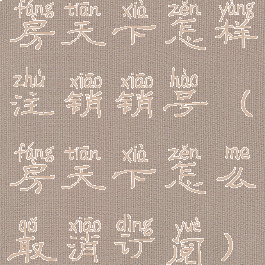 fáng tiān xià zěn yàng
房天下怎样
zhù xiāo xiāo hào
注销销号（
fáng tiān xià zěn me
房天下怎么
qǔ xiāo dìng yuè
取消订阅）